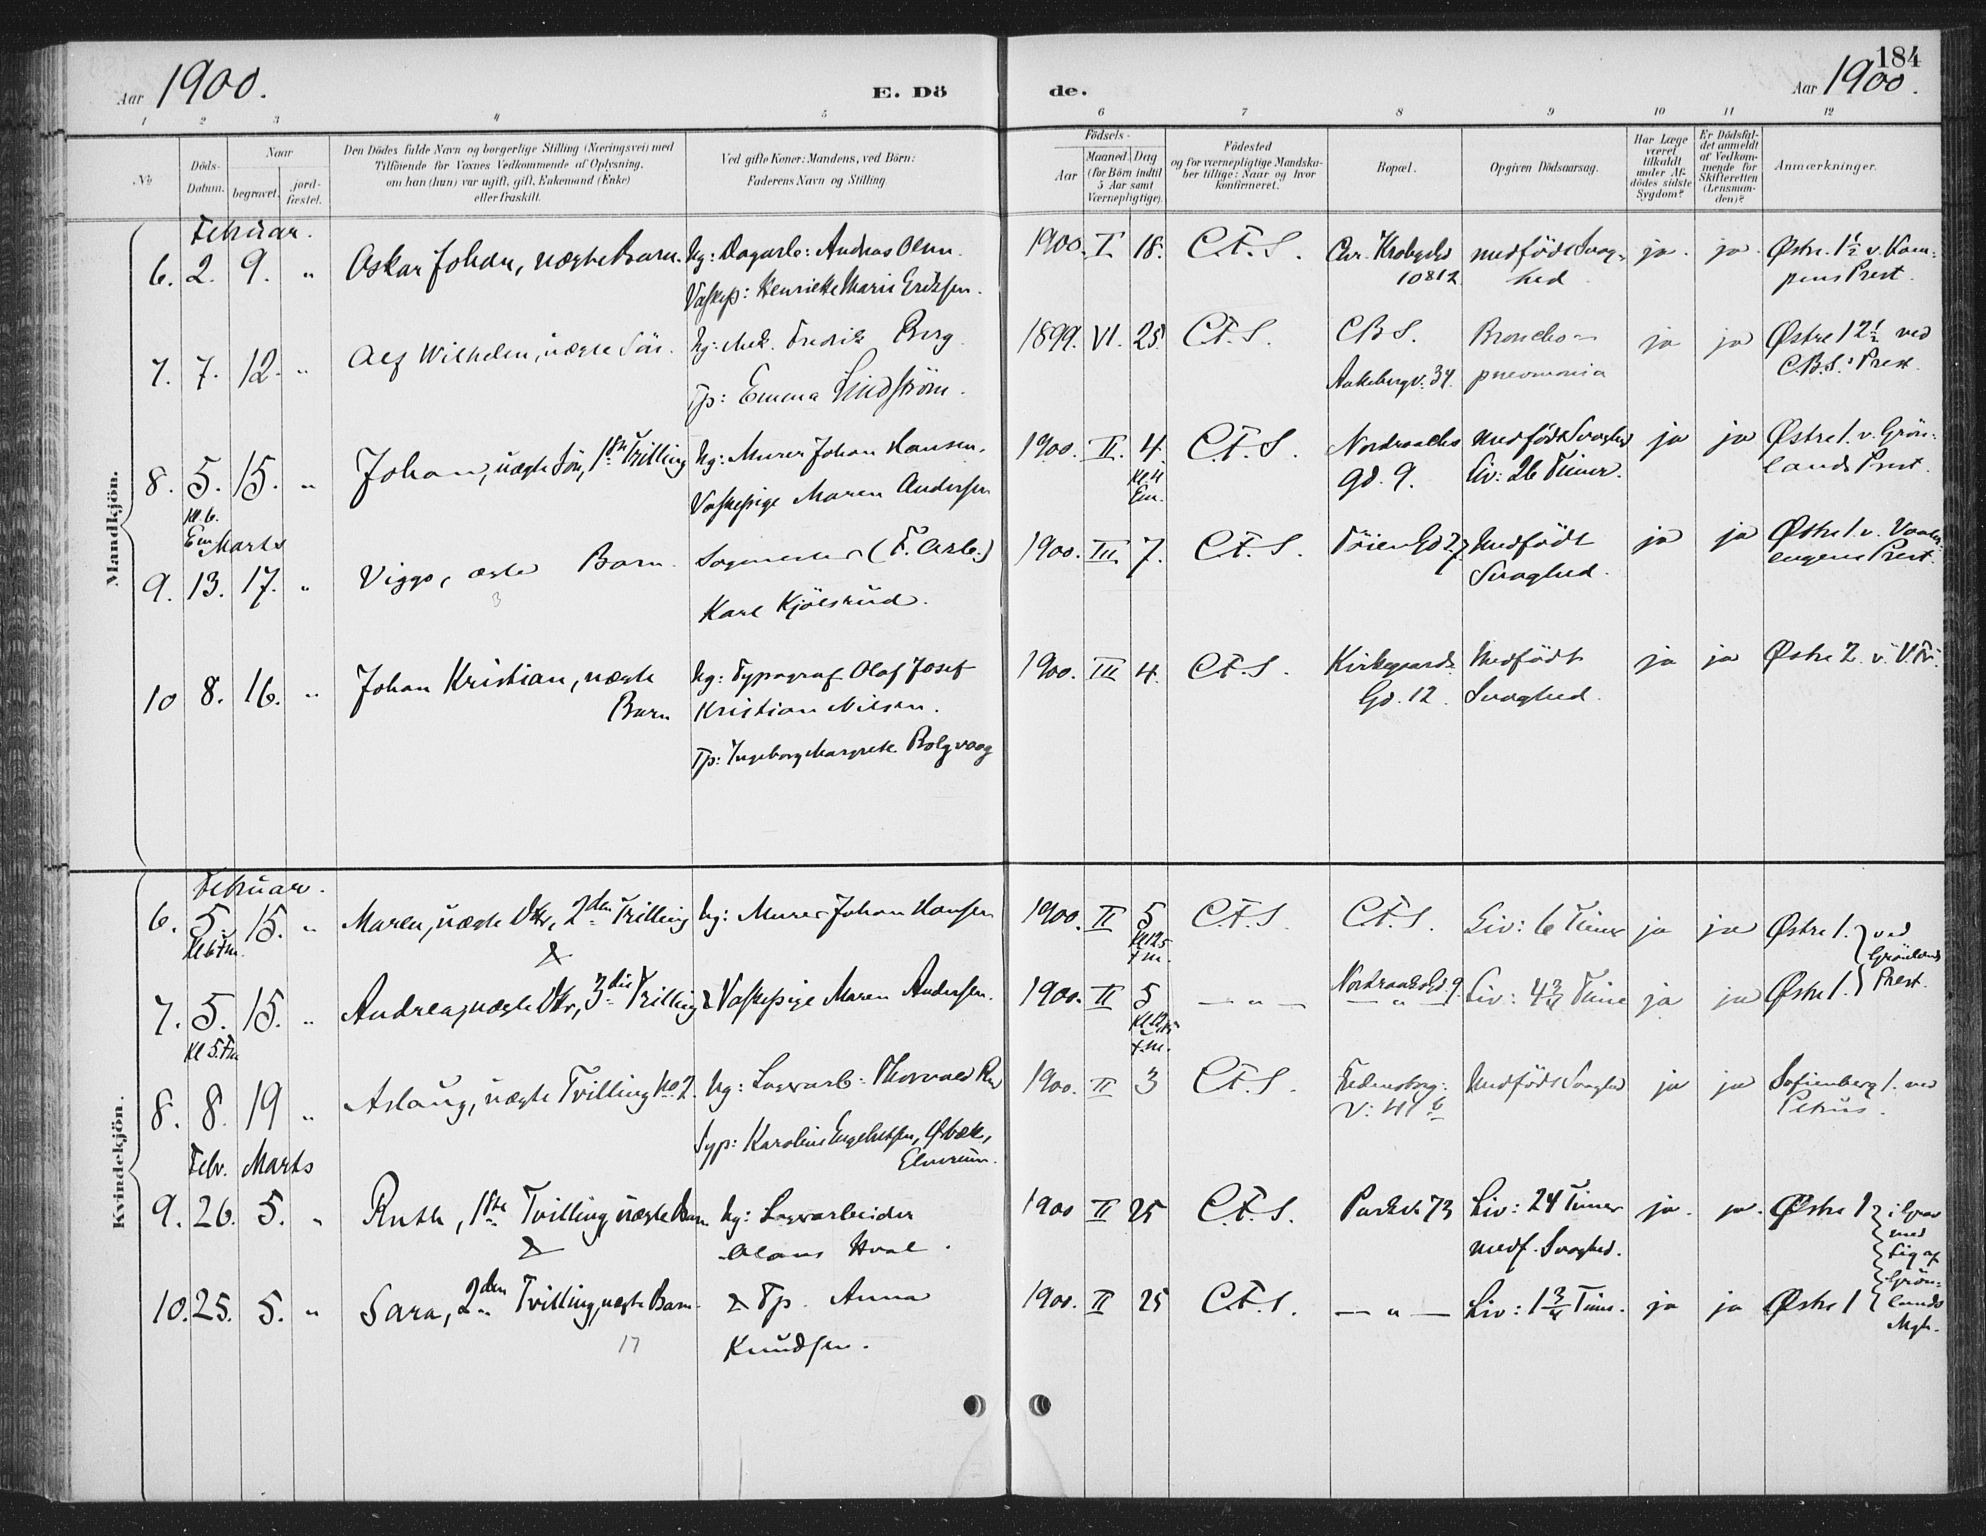 184
Aar 1900.
E. Dö
de.
Aar 1900.
1 2 3 4 5 6 7 8 9 10 11 12
No
Döds-
Datum.
Naar
begravet.
jord-
fæstet.
Den Dödes fulde Navn og borgerlige Stilling (Næringsvei) med
Tilföiende for Voxnes Vedkommende af Oplysning,
om han (hun) var ugift, gift, Enkemand (Enke)
eller fraskilt.
Ved gifte Koner: Mandens, ved Börn:
Faderens Navn og Stilling
Födsels-
Aar
Maaned. Dag
(for Börn indtil
5 Aar samt
Værnepligtige).
Födested
og for værnepligtige Mandska-
ber tillige: Naar og hvor
konfirmeret.
Bopæl.
Opgiven Dödsaarsag.
Har Læge
været
tilkaldt
under Af-
dödes sidste
Sygdom?
Er Dödsfal-
det anmeldt
af Vedkom-
mende for
Skifteretten
(Lensman-
den)?
Anmærkninger.
Mandkjön.
Februar.
6. 2. 9. " Oskar Johan, uægte Barn. Ug: Dagarb: Andreas Olsen. 1900. I 18. C.F.S. Chr. Krohgsgd medfödt Svag- ja. ja. Östre 1½ v. Kam-
Vaskep: Henriette Marie Eriksen. 10812 hed pens Prest.
7. 7. 12. " Alf Wilhelm, uægte Sön. Ug: Mek. Fredrik Berg. 1899. VI. 25. C.F.S. C B S. Broncho- ja ja Östre 1 2½ ved
Tp: Emma Lindström. Aakebergv. 34. pneumonia C.B.S.: Prest.
8. 5. 15. " Johan, uægte Sön, 1ste Trilling Ug: Murer Johan Hansen. 1900. II. 4. C.F.S. Nordraachs medfödt Svaghed ja ja Östre 1. v. Grön-
Kl. 6. Em Vaskepige Maren Andersen Kl. 11 Em. gd. 9. Liv: 26 Timer. lands Prest.
Marts
9. 13. 17. " Viggo, ægte Barn. (F. Arb.) 1900. III 7. C.F.S. Töien Gd 27 Medfödt ja ja Östre 1. v. Vaaler-
3 Karl Kjölsrud. Svaghed. engens Prest.
10 8. 16. " Johan Kristian, uægte Ug: Typograf Olaf Josef 1900. III 4. C.F.S. Kirkegaards Medfödt ja ja Östre 2. v. V. Fr.
Barn Kristian Nilsen. Gd. 12. Svaghed.
Tp: Ingeborg Margrete Bolgvaag
Kvindekjön.
Februar.
6. 5. 15. " Maren, uægte Dtr, 2den Trilling Ug: Murer Johan Hansen 1900. II 5 C.F.S. C.F.S. Liv: 6 Timer ja ja Östre 1. ved
Kl 6 Fm. & Kl 12 5 Fm. Grönlands
7. 5. 15. " Andrea, uægte Dtr, 3die Trilling & Vaskepige Maren Andersen. 1900. II 5 — " — Nordraaksgd. 9. Liv: 4¾ Time ja ja Östre 1. Prest.
Kl 5. Fm — " —
8. 8. 19 " Aslaug, uægte Tvilling No 2. Ug: Lagerarb: Thorvald 1900. II 3 C.F.S. Fredensborg- Medfödt Svaghed ja ja Sofienberg 1. ved
Syp: Karoline Engebretsen, v: 41 b Petrus.
Elverum.
Febr. Marts
9. 26. 5. " Ruth, 1ste Tvilling, uægte Barn Ug: Lagerarbeider 1900 II 25 C.F.S. Parkv. 73 Liv: 24 Timer ja. ja. Östre 1 i Grav
& Olaus Hval. medf. Svaghed. med
Lig af
10. 25. 5. " Sara, 2den Tvilling, uægte Barn. & Tp. Anna 1900. II 25 C.F.S. — " — Liv: 1¾ Time. ja ja Östre 1 Grön-
17 Knudsen. lands
Mgh.